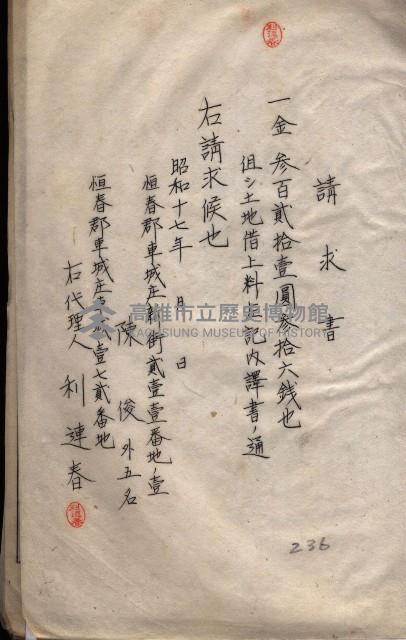 請求書
一金 參百貳拾壹圓參拾六錢也
但シ土地借上料 記内譯書ノ通
右請求候也
昭和十七年 月 日
恒春郡車城庄 街貳壹壹番地ノ壹
陳俊 外五名
恒春郡車城庄 貳壹七貳番地
右代理人 利連春
236
高雄市立歷史博物館
KAOHSIUNG MUSEUM OF HISTORY